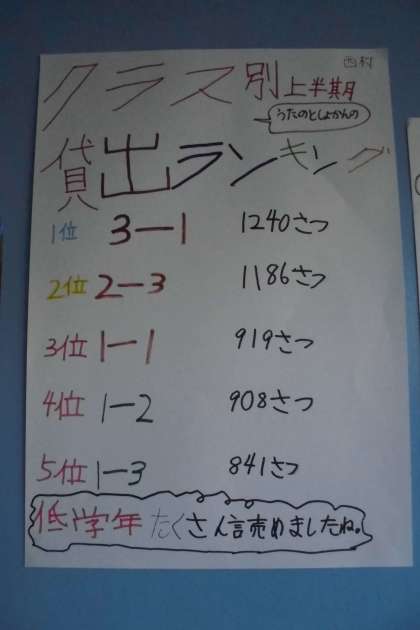 西村
クラス別上半期
うたのとしょかんの
貸出ランキング
1位 3-1 1240さつ
2位 2-3 1186さつ
3位 1-1 919さつ
4位 1-2 908さつ
5位 1-3 841さつ
低学年たくさん読めましたね。